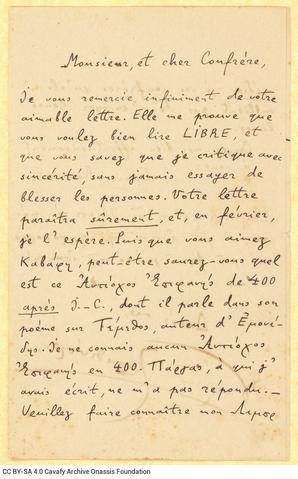 Monsieur, et cher Confrère,
Je vous remercie infiniment de votre
aimable lettre. Elle me prouve que
vous voulez bien lire LIBRE, et
que vous savez que je critique avec
sincérité, sans jamais essayer de
blesser les personnes. Votre lettre
paraîtra sûrement, et, en février,
je l'espère. Puis que vous aimez
Καβάφη, peut-être saurez-vous quel
est ce Ἀντίοχος Ἐπιφανὴς de 400
après J.-C., dont il parle dans son
poème sur Τέμεθος, auteur d'Ἐμονί-
δης. Je ne connais aucun Ἀντίοχος
Ἐπιφανὴς en 400. Πάργας, a qui j'
avais écrit, ne m'a pas répondu.–
Veuillez faire connaître mon
CC BY-SA 4.0 Cavafy Archive Onassis Foundation